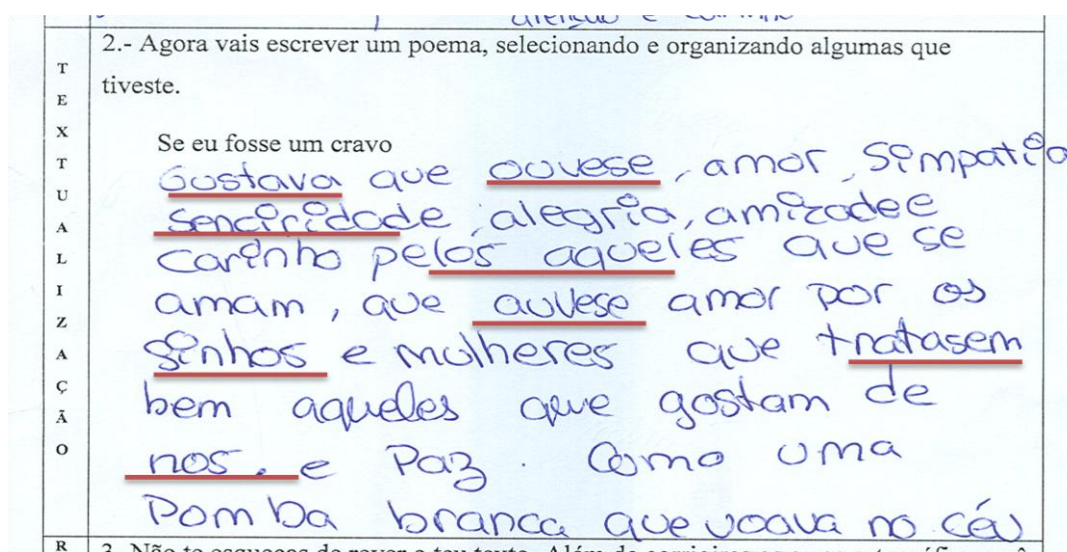 atenção e carinho
2.- Agora vais escrever um poema, selecionando e organizando algumas que
tiveste.
TEXTUALIZAÇÃO
Se eu fosse um cravo
Gustava que ouvese, amor, simpatia
senciridade, alegria, amizadee
carinho pelos aqueles que se
amam, que ouvese amor por os
sinhos e mulheres que tratasem
bem aqueles que gostam de
nos. e Paz. Como uma
Pomba branca que voava no céu
R
3. Não te esqueças de rever o teu texto. Além de